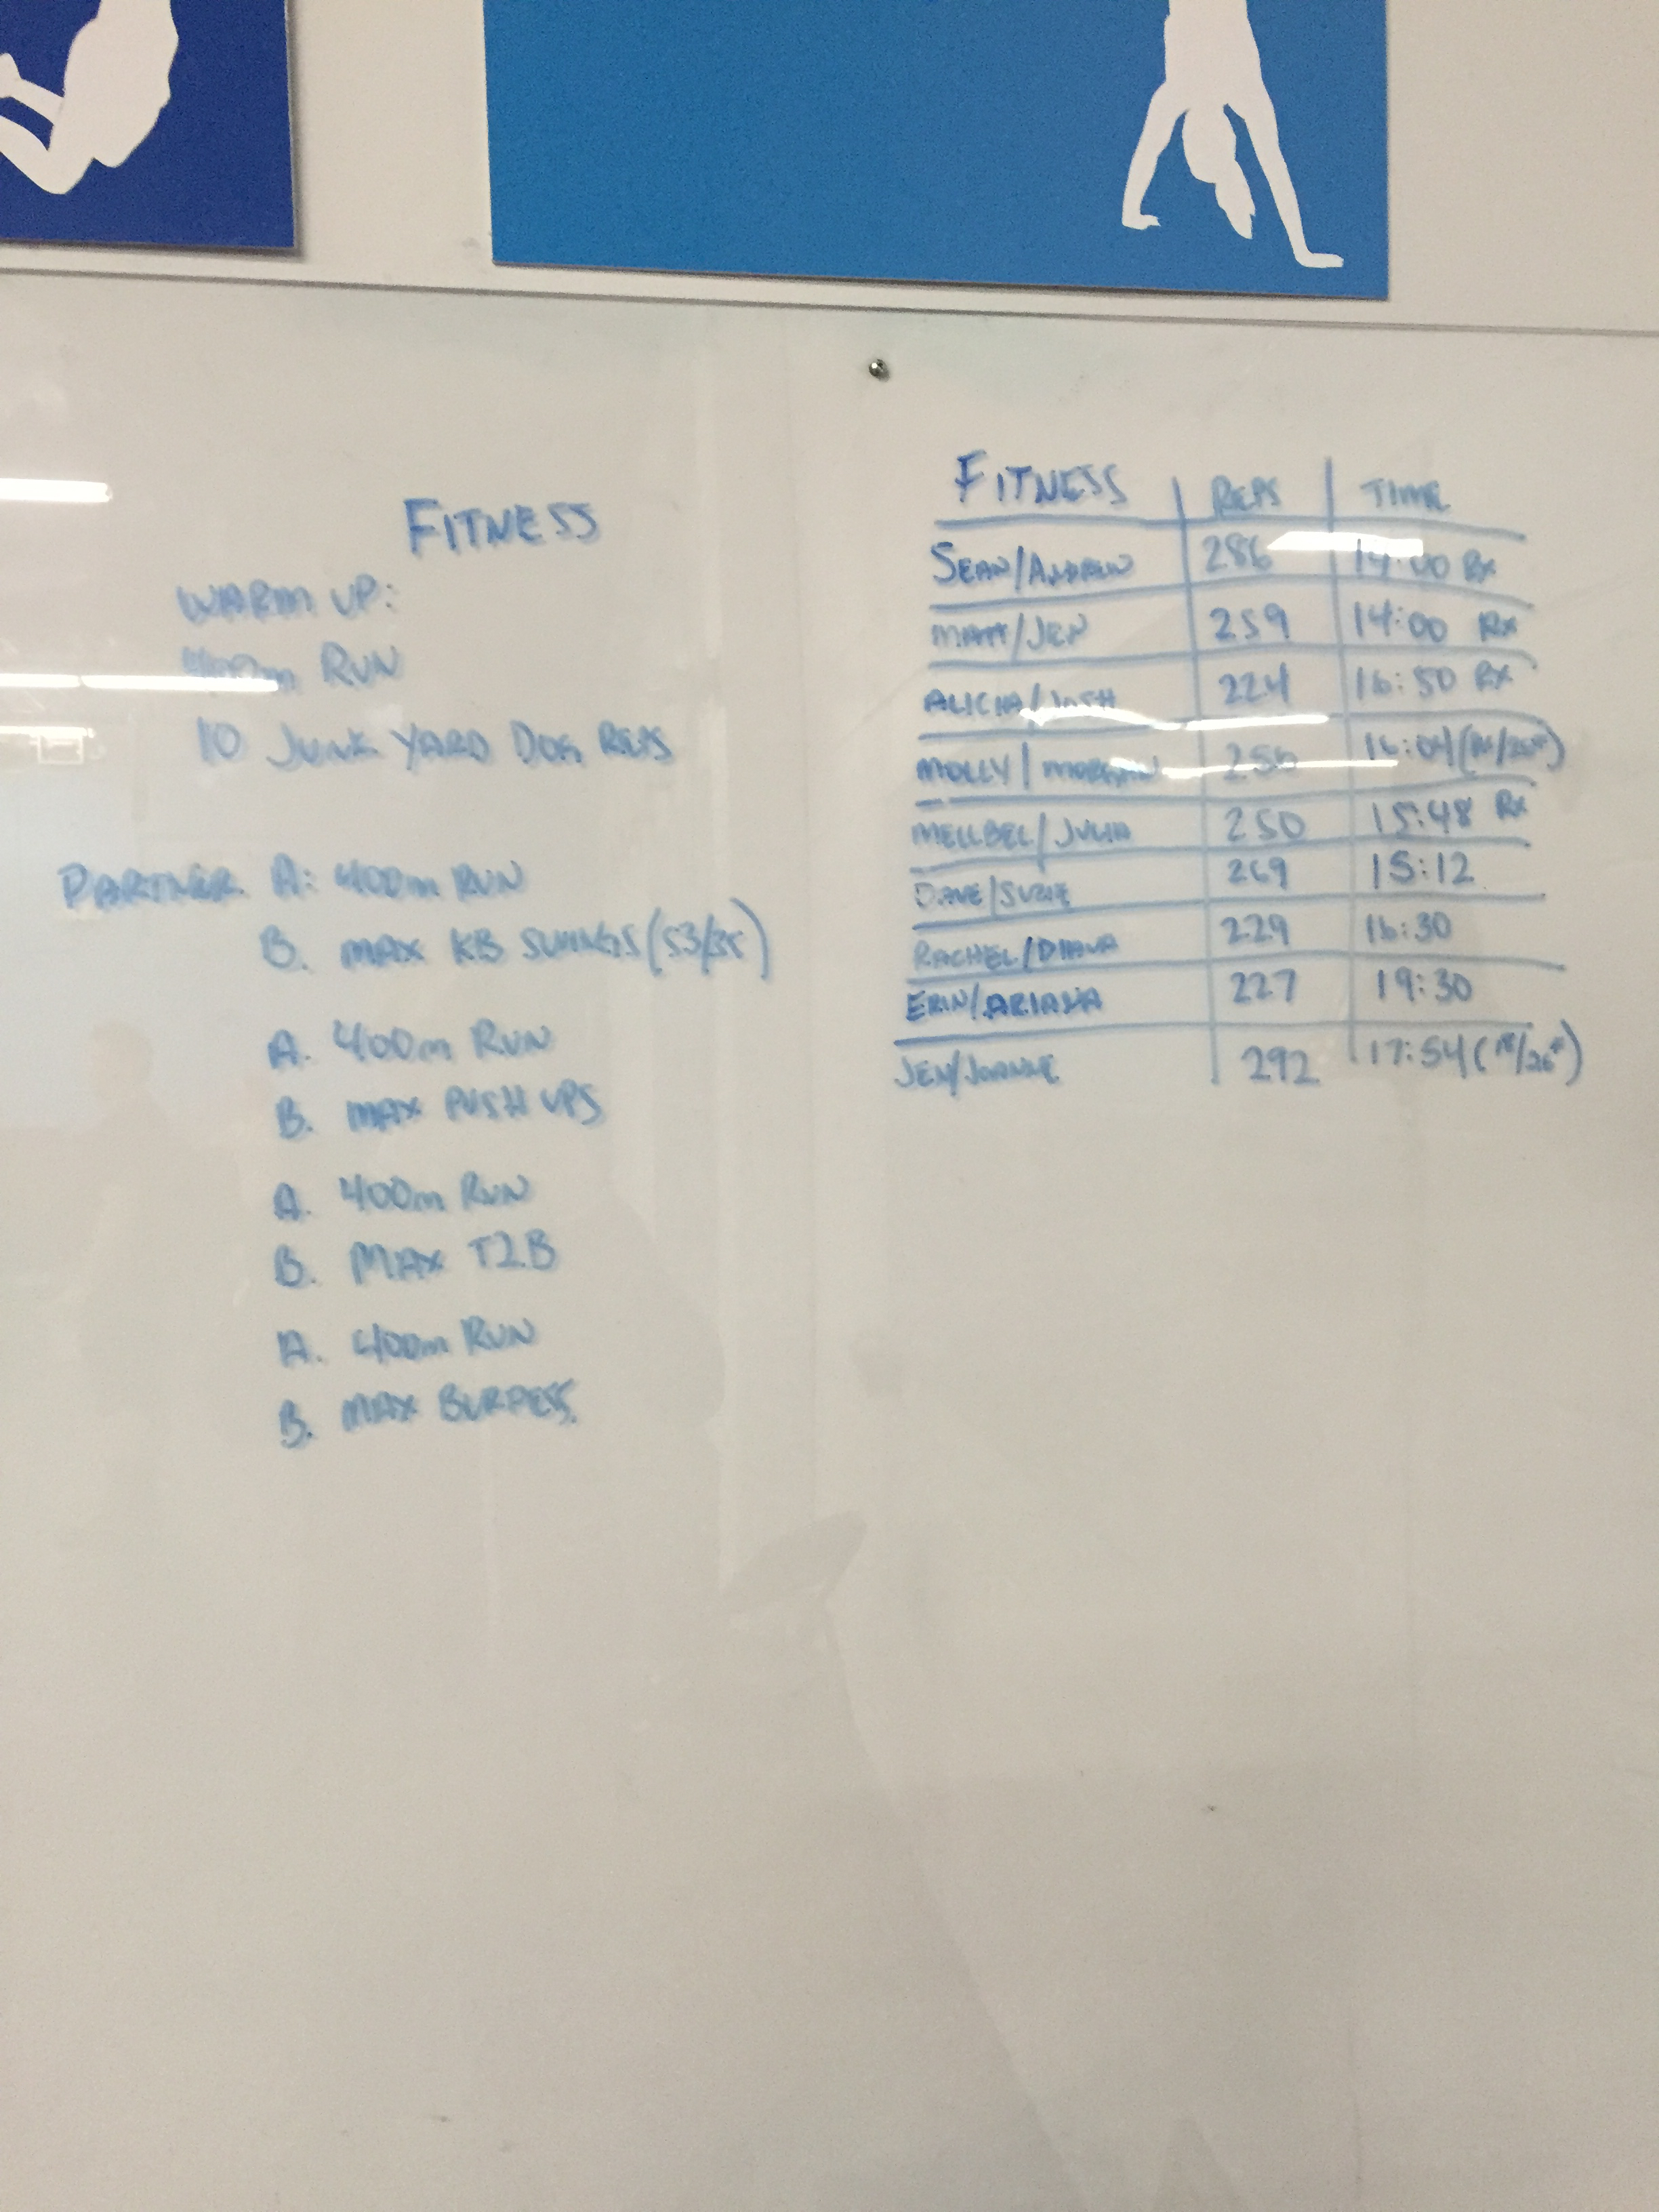 FITNESS
WARM UP:
400m RUN
10 JUNK YARD DOG REPS
PARTNER A: 400m RUN
B. MAX KB SWINGS (53/35)
A. 400m RUN
B. MAX PUSH UPS
A. 400m RUN
B. MAX T2B
A. 400m RUN
B. MAX BURPESS
FITNESS REPS TIME
SEAN/ANDREW 286 14:00 RX
MATT/JEN 259 14:00 RX
ALICIA/JOSH 224 16:50 RX
MOLLY/MORGAN 16:04
MELLBEL/JULIA 250 15:48 RX
DAVE/SUZIE 269 15:12
RACHEL/DIANA 229 16:30
ERIN/ 227 19:30
JEN/JOANNE 292 17:54 (18/26#)